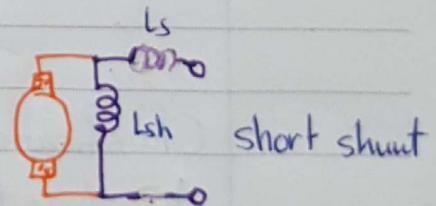 Ls
Lsh
short shunt